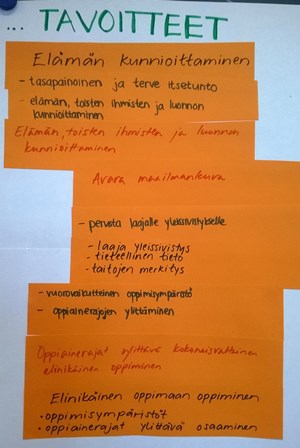 ... TAVOITTEET
Elämän kunnioittaminen
- tasapainoinen ja terve itsetunto
- elämän, toisten ihmisten ja luonnon
kunnioittaminen
Elämän, toisten ihmisten ja luonnon
kunnioittaminen
Avara maailmankuva
- perusta laajalle yleissivistykselle
- laaja yleissivistys
- tieteellinen tieto
- taitojen merkitys
- vuorovaikutteinen oppimisympäristö
- oppiainerajojen ylittäminen
Oppiainerajat ylittävä kokonaisvaltainen
elinikäinen oppiminen
Elinikäinen oppimaan oppiminen
• oppimisympäristöt
• oppiainerajat ylittävä osaaminen